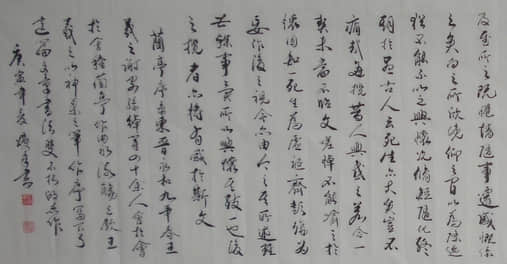 及其所之既倦情隨事遷感慨係
之矣向之所欣俛仰之間以為陳迹
猶不能不以之興懷況脩短隨化終
期於盡古人云死生亦大矣豈不
痛哉每攬昔人興感之若合一
契未嘗不臨文嗟悼不能喻之於
懷固知一死生為虛誕齊彭殤為
妄作後之視今亦由今之所述雖
世殊事異所以興懷其致一也後
之攬者亦將有感於斯文
蘭亭序系東晉永和九年春王
羲之謝安孫綽等四十余人會於會
於會稽蘭亭作曲水流觴之飲王
羲之以神來之筆作序寫下了
這篇文章書法雙不朽的杰作
庚寅年夏書